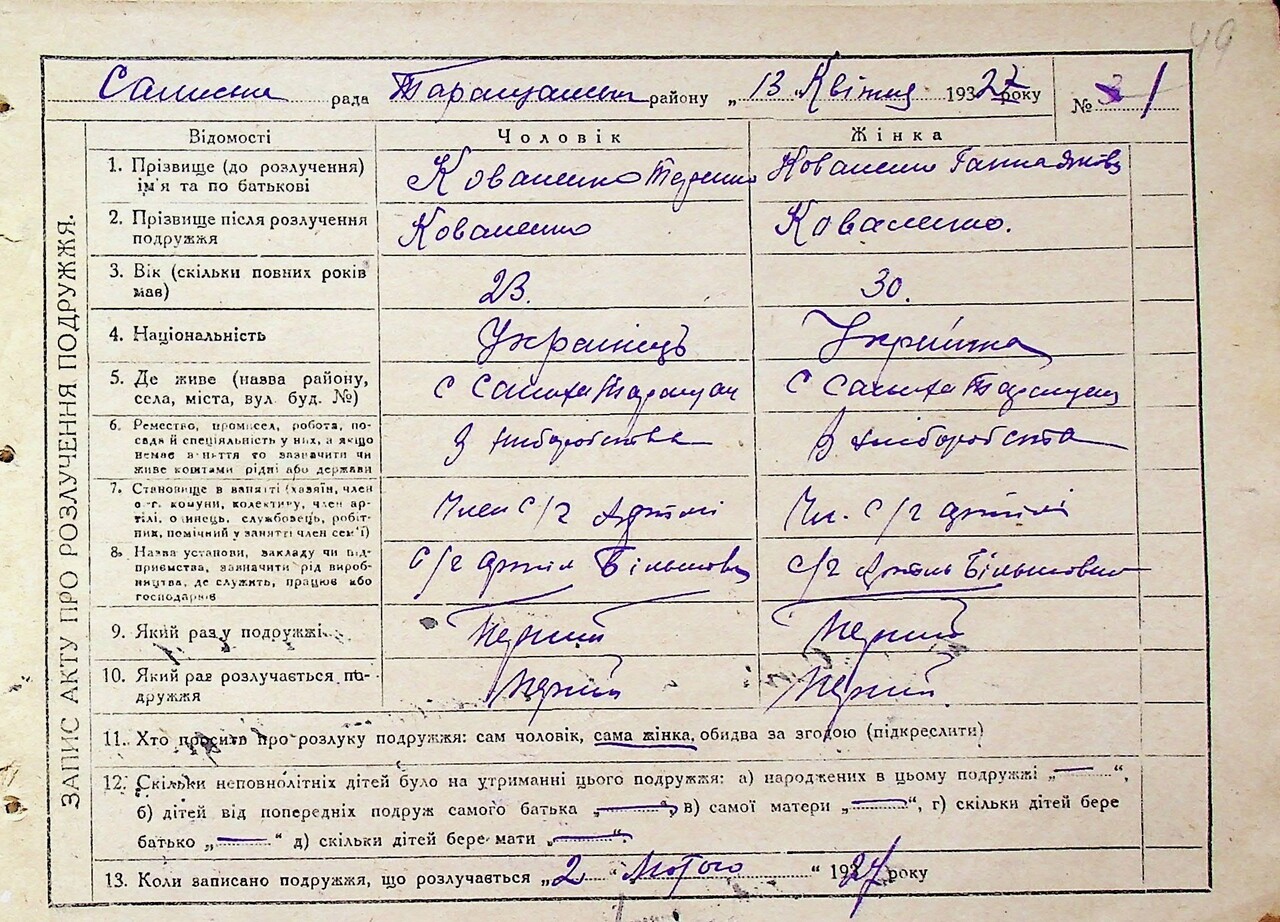 49
рада Таращанськ району „ 13 " Квітня 1937 року № 1
ЗАПИС АКТУ ПРО РОЗЛУЧЕННЯ ПОДРУЖЖЯ.
Відомості Чоловік Жінка
1. Прізвище (до розлучення) ім'я та по батькові Коваленко Коваленко Ганна Яков
2. Прізвище після розлучення подружжя Коваленко Коваленко.
3. Вік (скільки повних років мав) 23. 30.
4. Національність Українець Українка
5. Де живе (назва району, села, міста, вул. буд. №) с Салиха Таращан с Салиха Таращан
6. Ремество, промисел, робота, посада й спеціяльність у них, а якщо немає заняття то зазначити чи живе коштами рідні або держави З хліборобства З хліборобства
7. Становище в занятті (хазяїн, член с.-г. комуни, колективу, член артілі, одинець, службовець, робітник, помічний у занятті член сем'ї) Член С/г Артілі Чл. С/г артілі
8. Назва установи, закладу чи підприємства, зазначити рід виробництва, де служить, працює або господарює С/г артіль Більшовик С/г Артіль Більшовик
9. Який раз у подружжі Перший Перший
10. Який раз розлучається подружжя Перший Перший
11. Хто просить про розлуку подружжя: сам чоловік, сама жінка, обидва за згодою (підкреслити)
12. Скільки неповнолітніх дітей було на утриманні цього подружжя: а) народжених в цьому подружжі „ — ",
б) дітей від попередніх подруж самого батька „ — ", в) самої матери „ — ", г) скільки дітей бере
батько „ — " д) скільки дітей бере мати „ — ".
13. Коли записано подружжя, що розлучається „ 2 " Лютого " 1937 року